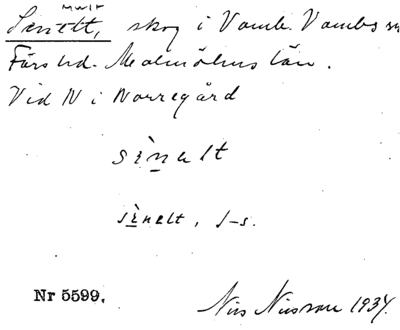 MWIF
Senelt, skog i Vomb. Vombs sn
Färs hd. Malmöhus län.
Vid N i Norregård
sènalt
sènelt, J-s.
Nr 5599.
Nils Nilsson 1934.